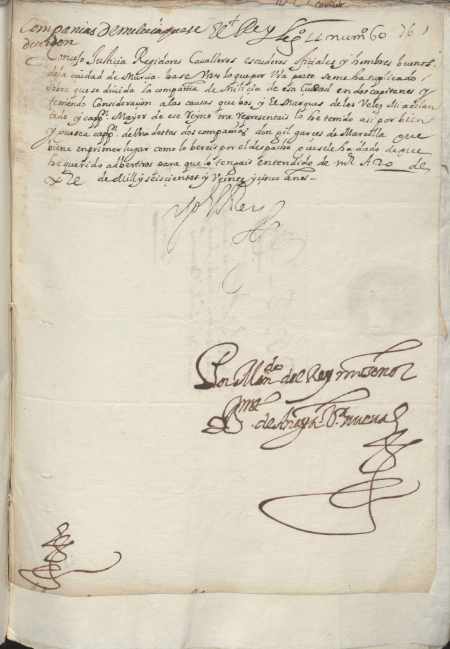 Companias de milicia que se El Rey Leg.º 4 num.º 60 761
dividan
Concejo Justicia Regidores Cavalleros escuderos oficiales y hombres buenos
de la ciudad de Murcia hase Visto lo que por Vra parte se me ha suplicado
sobre que se divida la compañia de Milicia de esa Ciudad en dos capitanes y
teniendo Consideraçion a las causas que vos y El Marques de los Velez Mi adelan
tado y capp.n Mayor de ese Reyno me Representais lo he tenido assi por bien
y nueva capp.n de Una destas dos compañias don gil garces de Marcilla que
viene en primer lugar como lo vereis por el despacho que se le ha dado de que
he querido advertiros para que lo tengais entendido de
de Mill y seiscientos y Veinte y cinco años
Yo El Rey
Por Man.do del Rey nuestro señor
de Anaya Villanueva